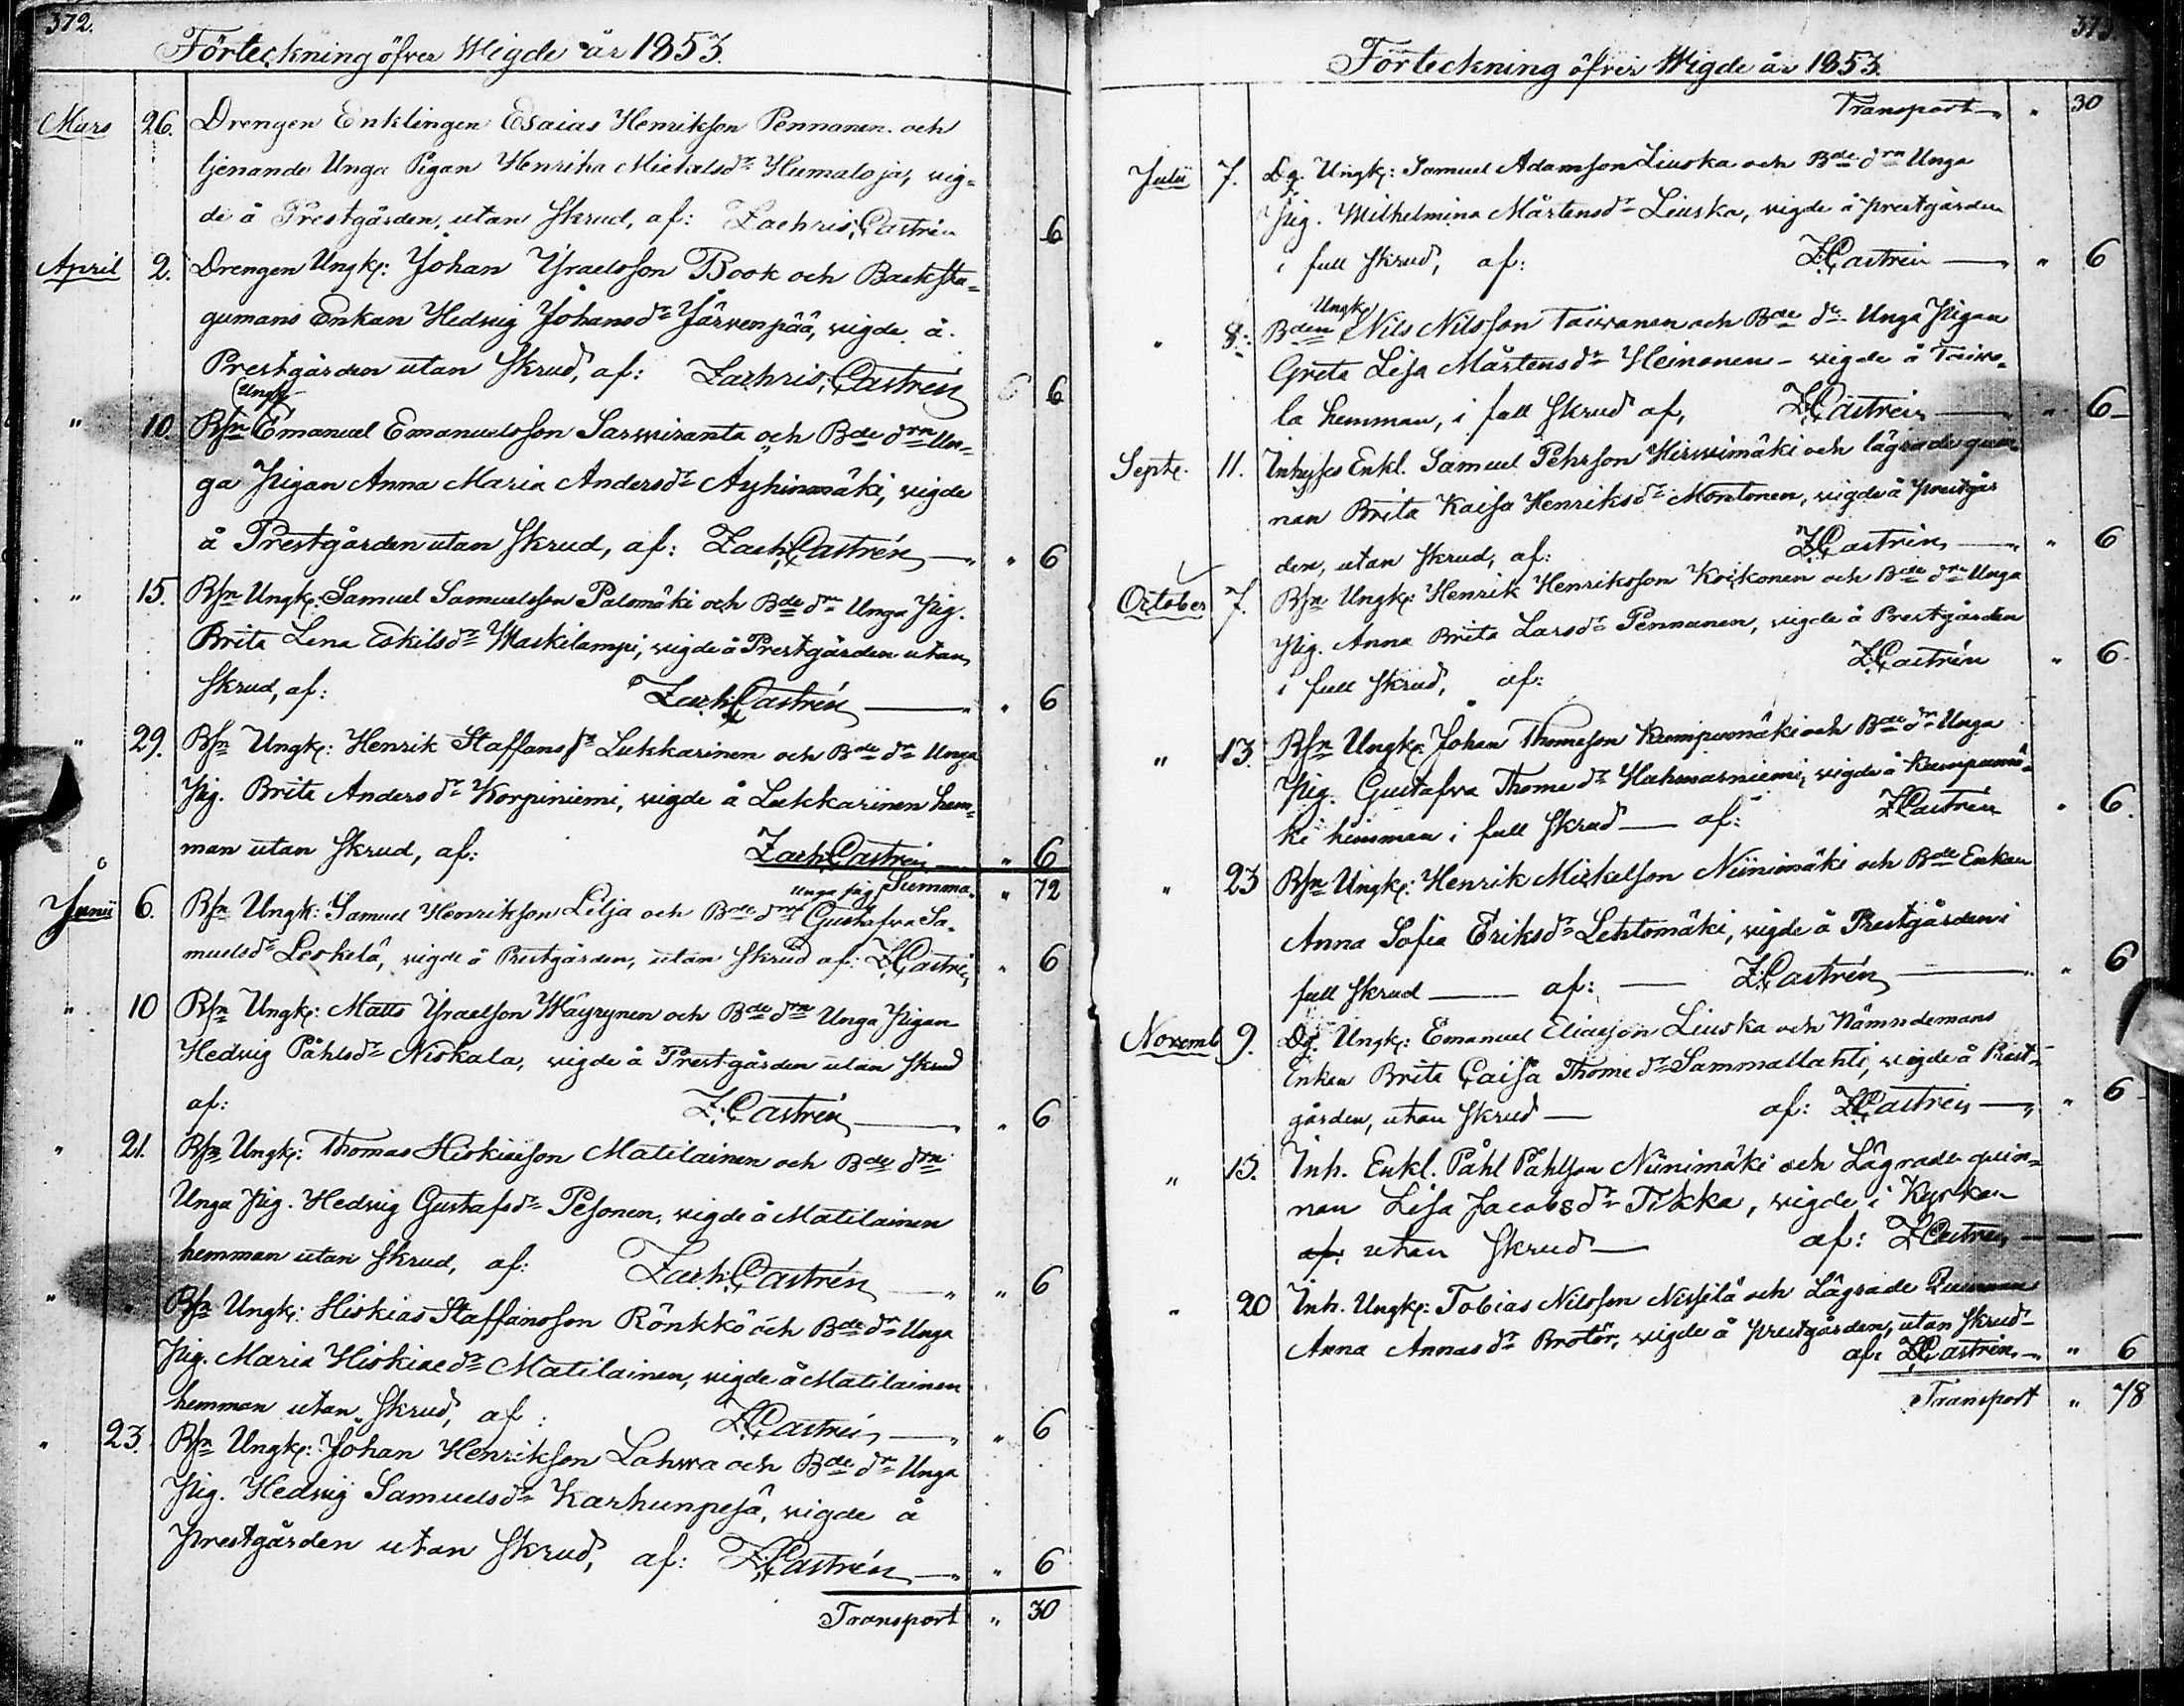 372.
Förteckning öfver Wigde år 1853.
Mars 26. Drengen Enklingen Esaias Henrikson Pennanen och
tjenande Unga Pigan Henrika Mickelsdr Humaloja, vig-
de å Prestgården, utan skrud, af: Zachris Castrén 6
April 2. Drengen Ungk: Johan Ysraelsson Book och Backstu-
gumans Enkan Hedvig Johansdr Järvenpää, vigde å
Prestgården utan skrud, af: Zachris Castrén 6 6
Ungk
" 10. Bsn Emanuel Emanuelsson Sarwiranta och Bde drn Un-
ga Pigan Anna Maria Andersdr Ayhinmäki, vigde
å Prestgården utan skrud, af: Zach: Castrén — " 6
" 15. Bsn Ungk: Samuel Samuelsson Palomäki och Bde drn Unga Pig.
Brita Lena Eskilsdr Waskilampi, vigde å Prestgården utan
skrud, af: Zach: Castrén — " 6
" 29. Bsn Ungk: Henrik Staffans Lukkarinen och Bde dr Unga
Pig. Brita Andersdr Korpiniemi, vigde å Lukkarinen hem-
man utan skrud, af: Zach: Castrén — " 6
Summa " 72
unga pig
Junii 6. Bsn Ungk: Samuel Henrikson Lilja och Bde drn Gustafva Sa-
muelsdr Leskelä, vigde å Prestgården, utan skrud af: Z. Castrén " 6
" 10 Bsn Ungk: Matts Ysraelson Wäyrynen och Bde drn Unga Pigan
Hedvig Påhlsdr Niskala, vigde å Prestgården utan skrud
af: Z: Castrén — " 6
" 21. Bsn Ungk: Thomas Hiskiaeson Matilainen och Bde drn
Unga Pig. Hedvig Gustafsdr Pesonen, vigde å Matilainen
hemman utan skrud, af: Zach: Castrén — " 6
" " Bsn Ungk: Hiskias Staffansson Rönkkö och Bde dr Unga
Pig. Maria Hiskiaedr Matilainen, vigde å Matilainen
hemman utan skrud, af: Z. Castrén — " 6
" 23. Bsn Ungk: Johan Henrikson Lahwa och Bde dr Unga
Pig. Hedvig Samuelsdr Karhunpesä, vigde å
Prestgården utan skrud, af: Z. Castrén — " 6
Transport " 30
373.
Förteckning öfver Wigde år 1853.
Transport — " 30
Julii 7. Dg. Ungk: Samuel Adamson Liuska och Bde drn Unga
Pig. Wilhelmina Mårtensdr Liuska, vigde å prestgården
i full skrud, af: Z. Castrén — " 6
Ungk
" 8. Bden Nils Nilsson Taiwanen och Bde dr Unga Pigan
Greta Lisa Mårtensdr Heinonen - vigde å Taiwa-
la hemman, i full skrud af, Z. Castrén — " 6
Septe. 11. Inhyses Enkl. Samuel Pehrson Hirwimäki och lägrade qvin-
nan Brita Kaisa Henriksdr Montonen, vigde å prestgår
den, utan skrud, af: Z. Castrén — " 6
October 7. Bsn Ungk: Henrik Henriksson Koikonen och Bde drn Unga
Pig. Anna Brita Larsdr Pennanen, vigde å Prestgården
i full skrud, af: Z. Castrén " 6
" 13. Bsn Ungk: Johan Thomeson Kumpumäki och Bde dr Unga
Pig. Gustafva Thomedr Huhmarniemi, vigde å Kumpumä-
ki hemman i full skrud — af: Z. Castrén " 6.
" 23 Bsn Ungk: Henrik Mickelson Niinimäki och Bde Enkan
Anna Sofia Eriksdr Lehtomäki, vigde å Prestgården i
full skrud — af: — Z. Castrén — " 6
Novemb 9. Dg. Ungk: Emanuel Eliaeson Liuska och Nämndemans
Enkan Brita Caisa Thomedr Sammallahti, vigde å Prest-
gården, utan skrud — af: Z. Castrén — " 6
" 13. Inh. Enkl. Påhl Påhlson Niinimäki och Lägrade qvin-
nan Lisa Jacobsdr Tikka, vigde i Kyrkan
af: utan skrud — af: Z. Castrén —
" 20 Inh. Ungk: Tobias Nilsson Nissilä och Lägrade Qvinnan
Anna Annasdr Brotör, vigde å prestgården, utan skrud
af: Z. Castrén — " 6
Transport " 78